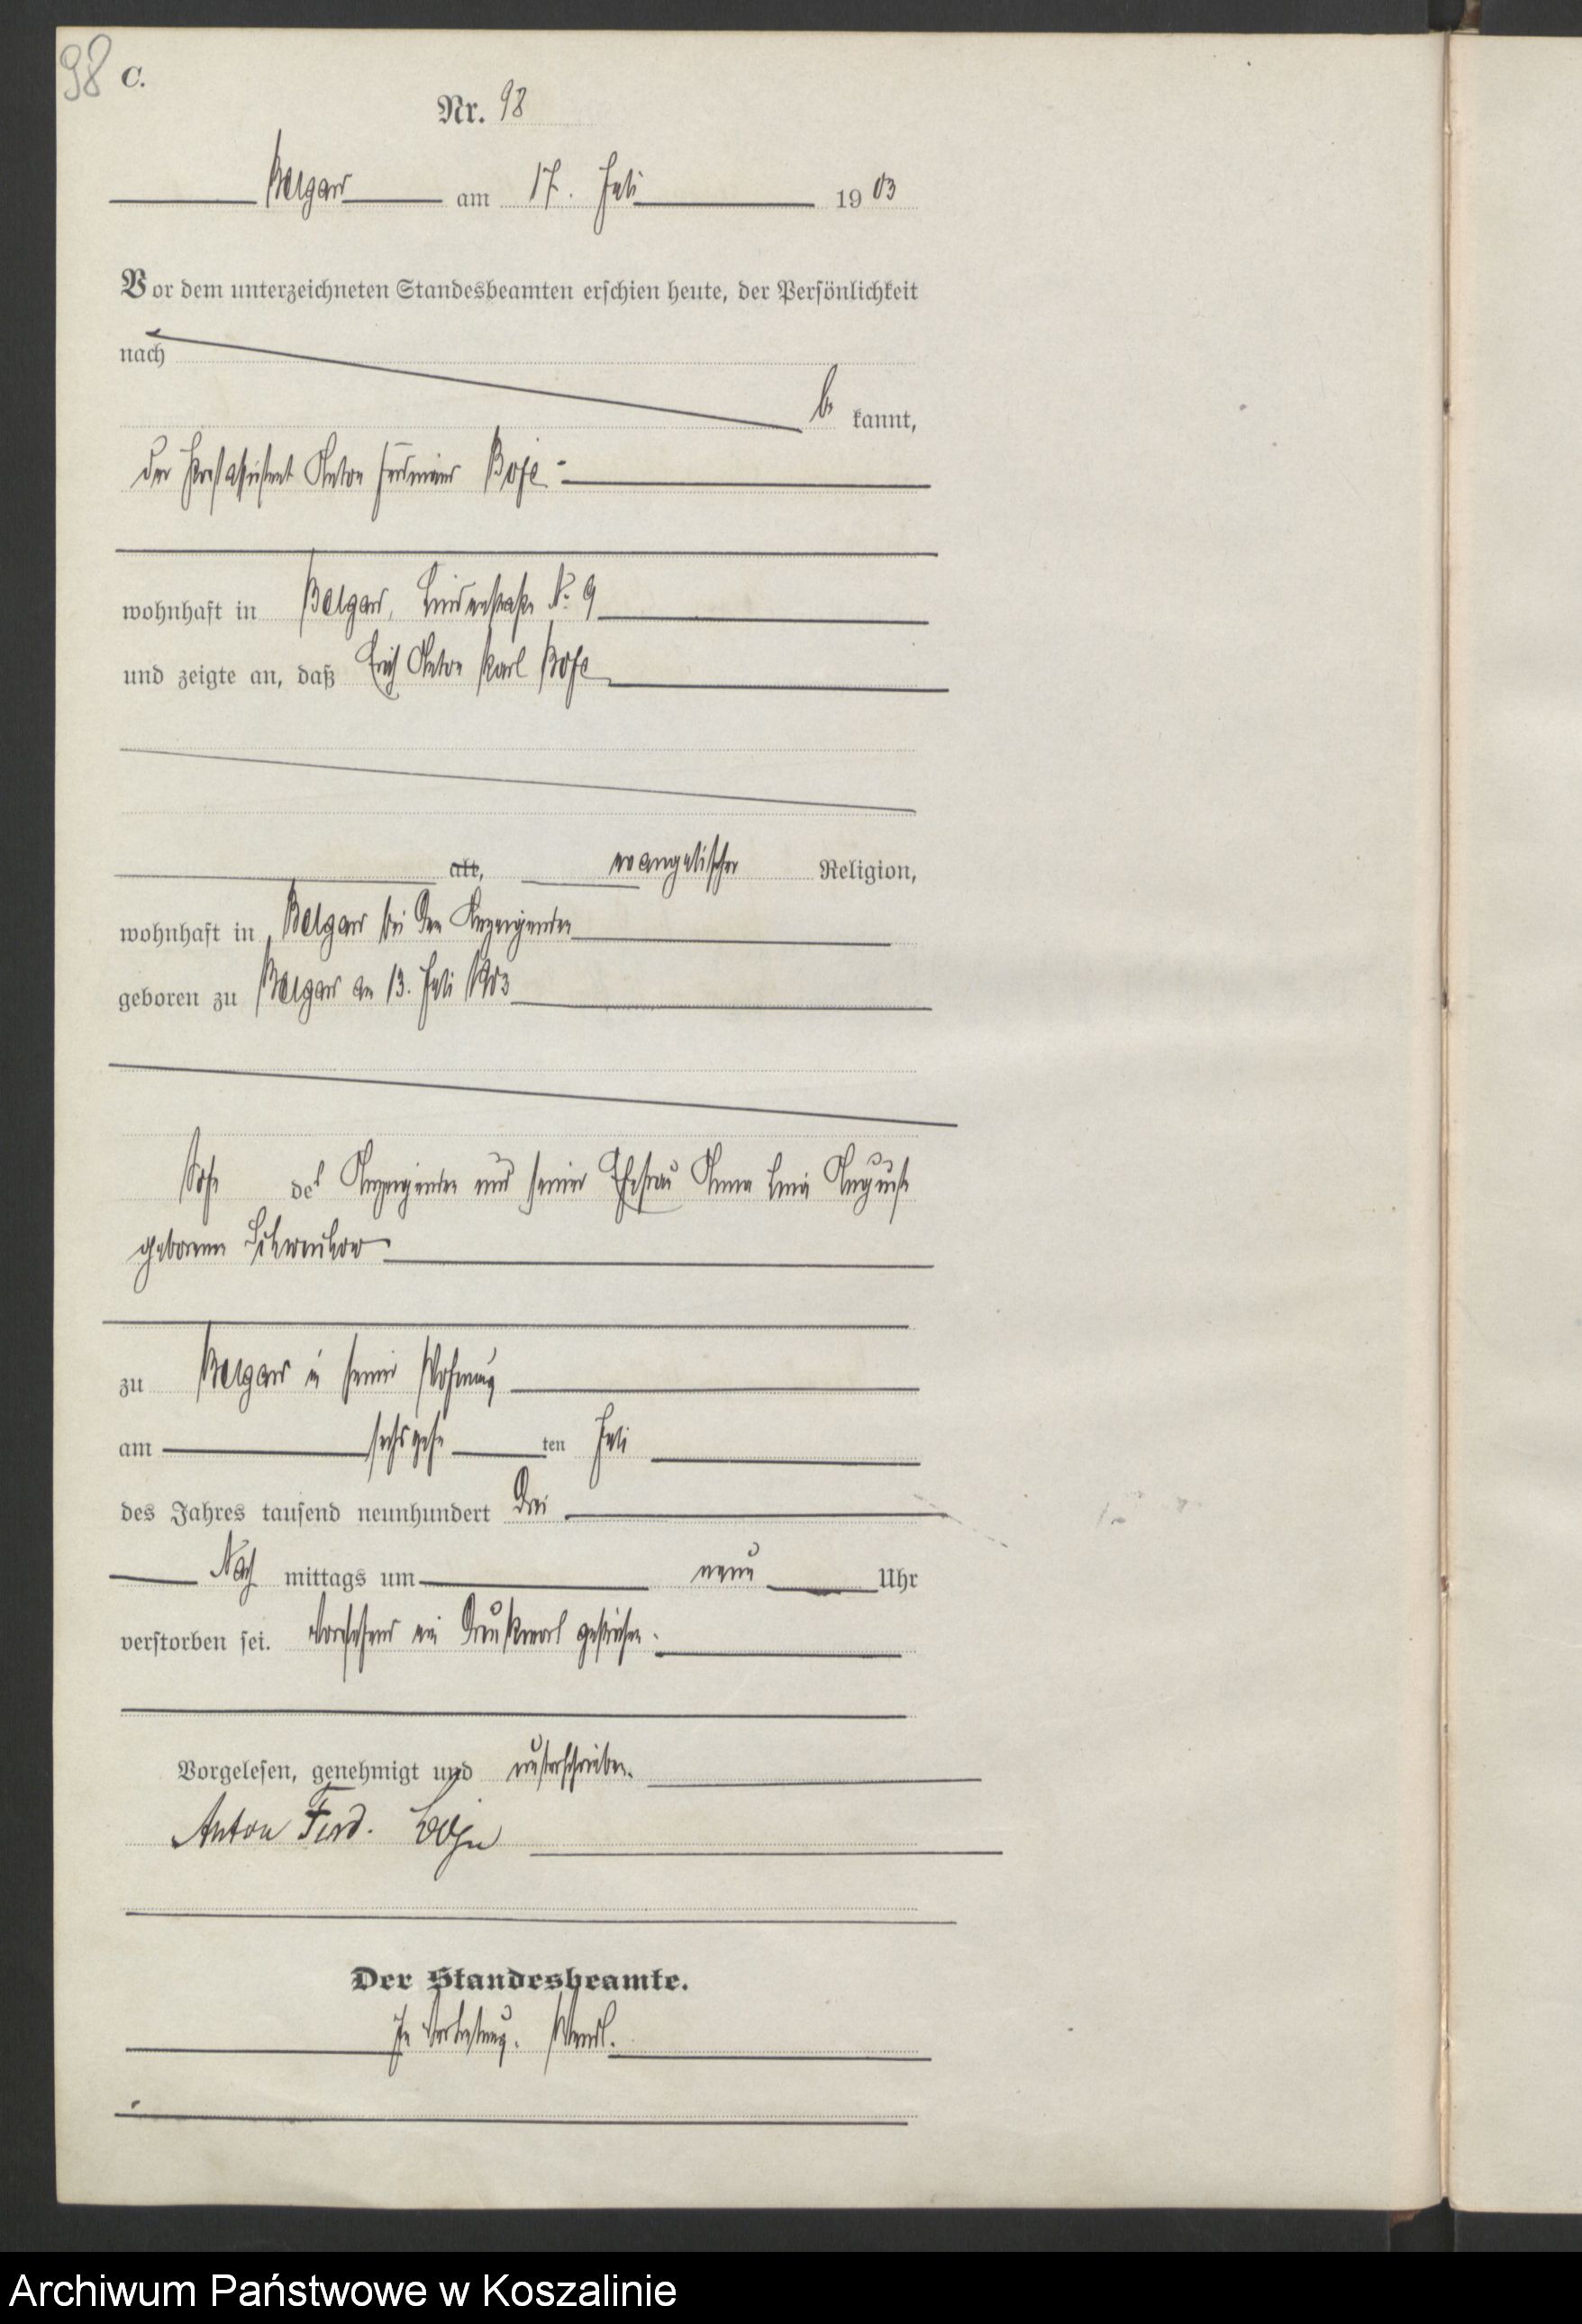 98 C.
Nr. 98
Belgard am 17. Juli 1903
Vor dem unterzeichneten Standesbeamten erschien heute, der Persönlichkeit
nach
be kannt,
der Postassistent Anton Ferdinand Boje
wohnhaft in Belgard, Lindenstraße No. 9
und zeigte an, daß Erich Anton Karl Boje
alt, evangelischer Religion,
wohnhaft in Belgard bei dem Anzeigenden
geboren zu Belgard am 13. Juli 1903
Sohn des Anzeigenden und seiner Ehefrau Anna Auguste
geborenen
zu Belgard in seiner Wohnung
am sechszehn ten Juli
des Jahres tausend neunhundert drei
Nach mittags um neun Uhr
verstorben sei. Vorstehend ein Druckwort gestrichen.
Vorgelesen, genehmigt und unterschrieben.
Anton Ferd. Boje
Der Standesbeamte.
In Vertretung.
Archiwum Państwowe w Koszalinie